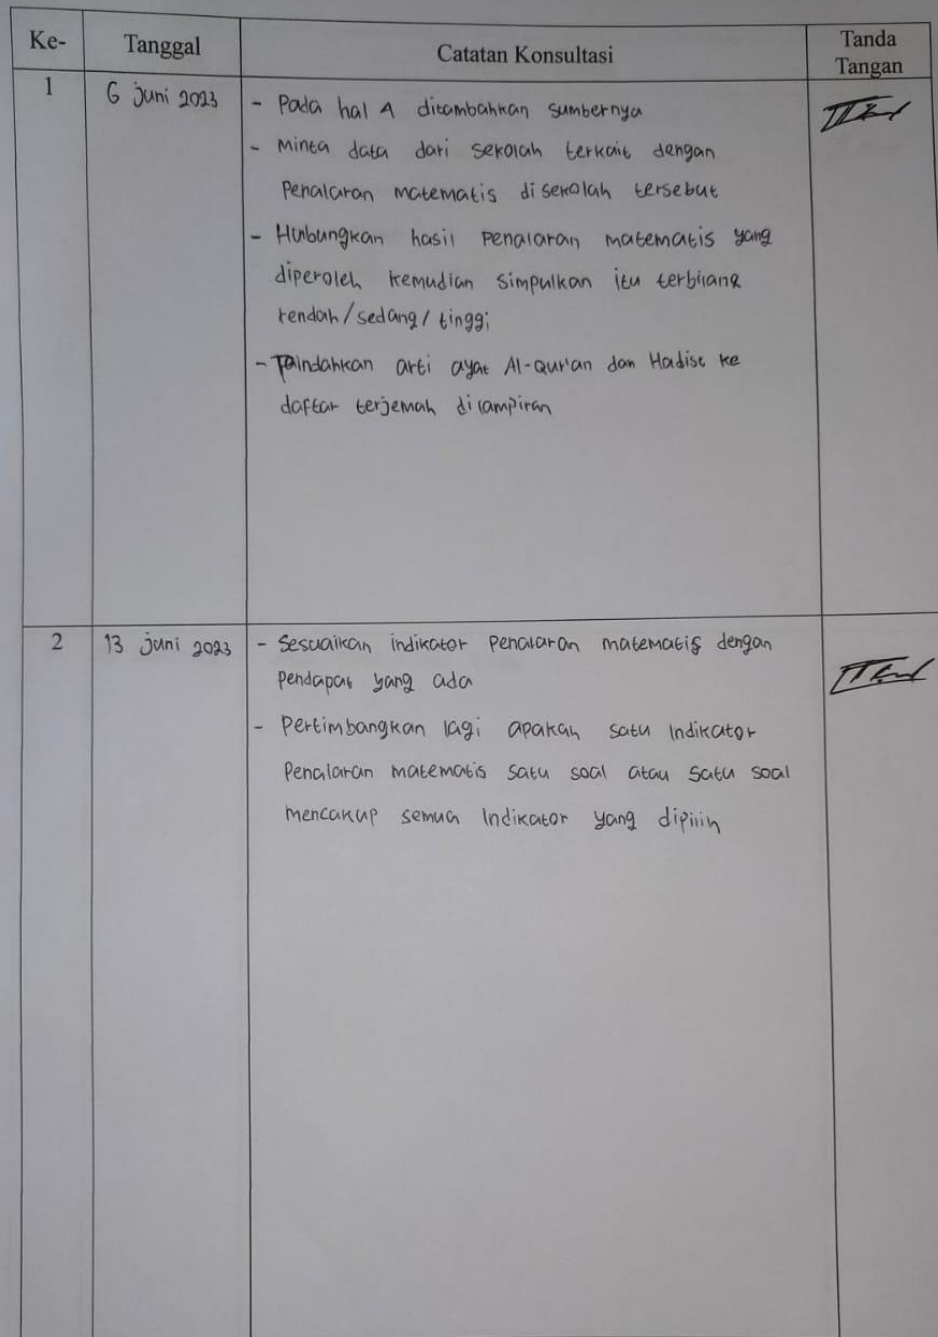 Ke- Tanggal Catatan Konsultasi Tanda Tangan
1 6 Juni 2023 - Pada hal 4 ditambahkan sumbernya
- Minta data dari sekolah terkait dengan
Penalaran matematis disekolah tersebut
- Hubungkan hasil Penalaran matematis yang
diperoleh kemudian simpulkan itu terbilang
rendah/sedang/tinggi
- Pindahkan arti ayat Al-Qur'an dan Hadist ke
daftar terjemah dilampiran
2 13 Juni 2023 - Sesuaikan indikator Penalaran matematis dengan
Pendapat yang ada
- Pertimbangkan lagi apakah satu Indikator
Penalaran matematis satu soal atau satu soal
mencakup semua Indikator yang dipilih